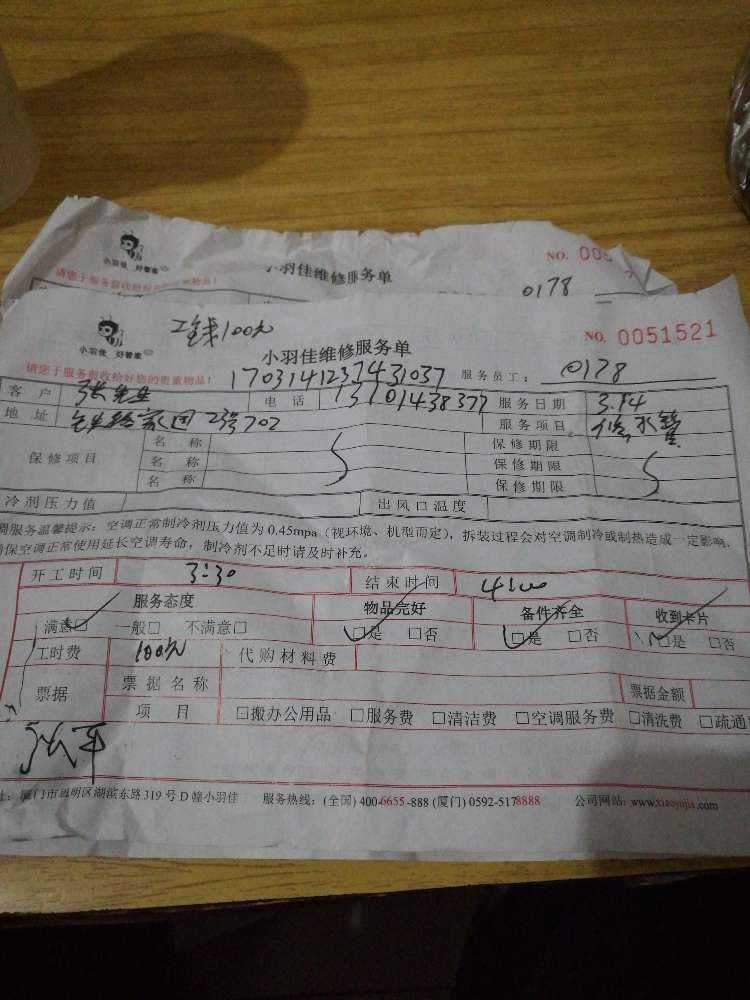 小羽佳 好管家
小羽佳维修服务单
NO. 005
0178
工钱100元
小羽佳 好管家
小羽佳维修服务单
NO. 0051521
请您于服务前收拾好您的贵重物品!
1703141237431037
服务员工: 0178
客户 张先生 电话 13101438377 服务日期 3.14
地址 家园23号702 服务项目 修水管
保修项目 名称 保修期限
名称 保修期限
名称 保修期限
冷剂压力值 出风口温度
调服务温馨提示:空调正常制冷剂压力值为 0.45mpa(视环境、机型而定),拆装过程会对空调制冷或制热造成一定影响.
确保空调正常使用延长空调寿命,制冷剂不足时请及时补充。
开工时间 3:30 结束时间 4:00
服务态度 物品完好 备件齐全 收到卡片
满意□ 一般□ 不满意□ □是 □否 □是 □否 □是 □否
工时费 100元 代购材料费
票据 票据名称 票据金额
项目 □搬办公用品 □服务费 □清洁费 □空调服务费 □清洗费 □疏通
址:厦门市思明区湖滨东路 319 号 D 幢小羽佳 服务热线:(全国) 400-6655-888 (厦门) 0592-5178888 公司网站: www.xiaoyujia.com